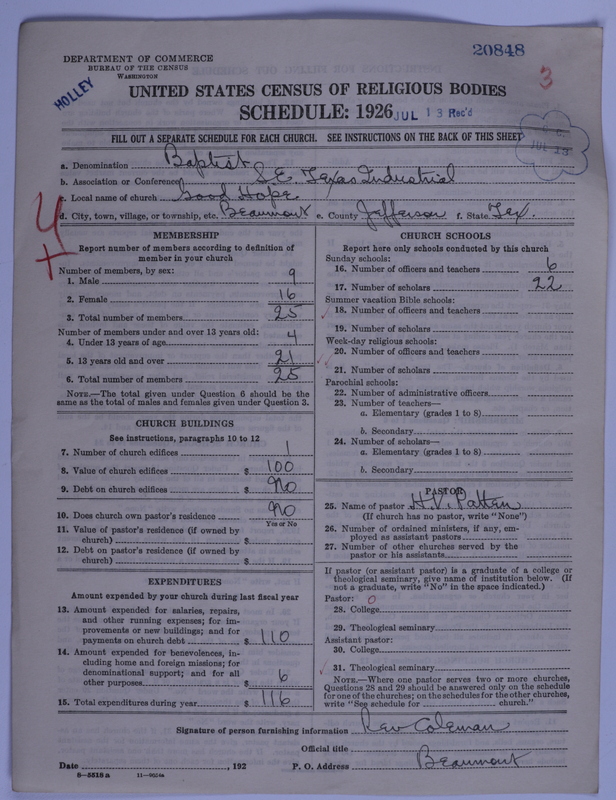 20848
DEPARTMENT OF COMMERCE
BUREAU OF THE CENSUS
WASHINGTON
HOLLEY
3
UNITED STATES CENSUS OF RELIGIOUS BODIES
SCHEDULE: 1926
JUL 13 Rec'd
FILL OUT A SEPARATE SCHEDULE FOR EACH CHURCH. SEE INSTRUCTIONS ON THE BACK OF THIS SHEET
JUL 13
a. Denomination Baptist
b. Association or Conference S.E. Texas Industrial
c. Local name of church Good Hope
d. City, town, village, or township, etc. Beaumont e. County Jefferson f. State Tex.
MEMBERSHIP
Report number of members according to definition of
member in your church
Number of members, by sex:
1. Male 9
2. Female 16
3. Total number of members 25
Number of members under and over 13 years old:
4. Under 13 years of age 4
5. 13 years old and over 21
6. Total number of members 25
NOTE.—The total given under Question 6 should be the
same as the total of males and females given under Question 3.
CHURCH BUILDINGS
See instructions, paragraphs 10 to 12
7. Number of church edifices 1
8. Value of church edifices $ 100
9. Debt on church edifices $ No
10. Does church own pastor's residence No
Yes or No
11. Value of pastor's residence (if owned by
church) $
12. Debt on pastor's residence (if owned by
church) $
EXPENDITURES
Amount expended by your church during last fiscal year
13. Amount expended for salaries, repairs,
and other running expenses; for im-
provements or new buildings; and for
payments on church debt $ 110
14. Amount expended for benevolences, in-
cluding home and foreign missions; for
denominational support; and for all
other purposes $ 6
15. Total expenditures during year $ 116
CHURCH SCHOOLS
Report here only schools conducted by this church
Sunday schools:
16. Number of officers and teachers 6
17. Number of scholars 22
Summer vacation Bible schools:
18. Number of officers and teachers
19. Number of scholars
Week-day religious schools:
20. Number of officers and teachers
21. Number of scholars
Parochial schools:
22. Number of administrative officers
23. Number of teachers—
a. Elementary (grades 1 to 8)
b. Secondary
24. Number of scholars—
a. Elementary (grades 1 to 8)
b. Secondary
PASTOR
25. Name of pastor H. V. Patten
(If church has no pastor, write "None")
26. Number of ordained ministers, if any, em-
ployed as assistant pastors
27. Number of other churches served by the
pastor or his assistants
If pastor (or assistant pastor) is a graduate of a college or
theological seminary, give name of institution below. (If
not a graduate, write "No" in the space indicated.)
Pastor: 0
28. College
29. Theological seminary
Assistant pastor:
30. College
31. Theological seminary
NOTE.—Where one pastor serves two or more churches,
Questions 28 and 29 should be answered only on the schedule
for one of the churches; on the schedules for the other churches,
write "See schedule for church."
Signature of person furnishing information Rev Coleman
Official title
Date , 192 P. O. Address Beaumont
8—5518a